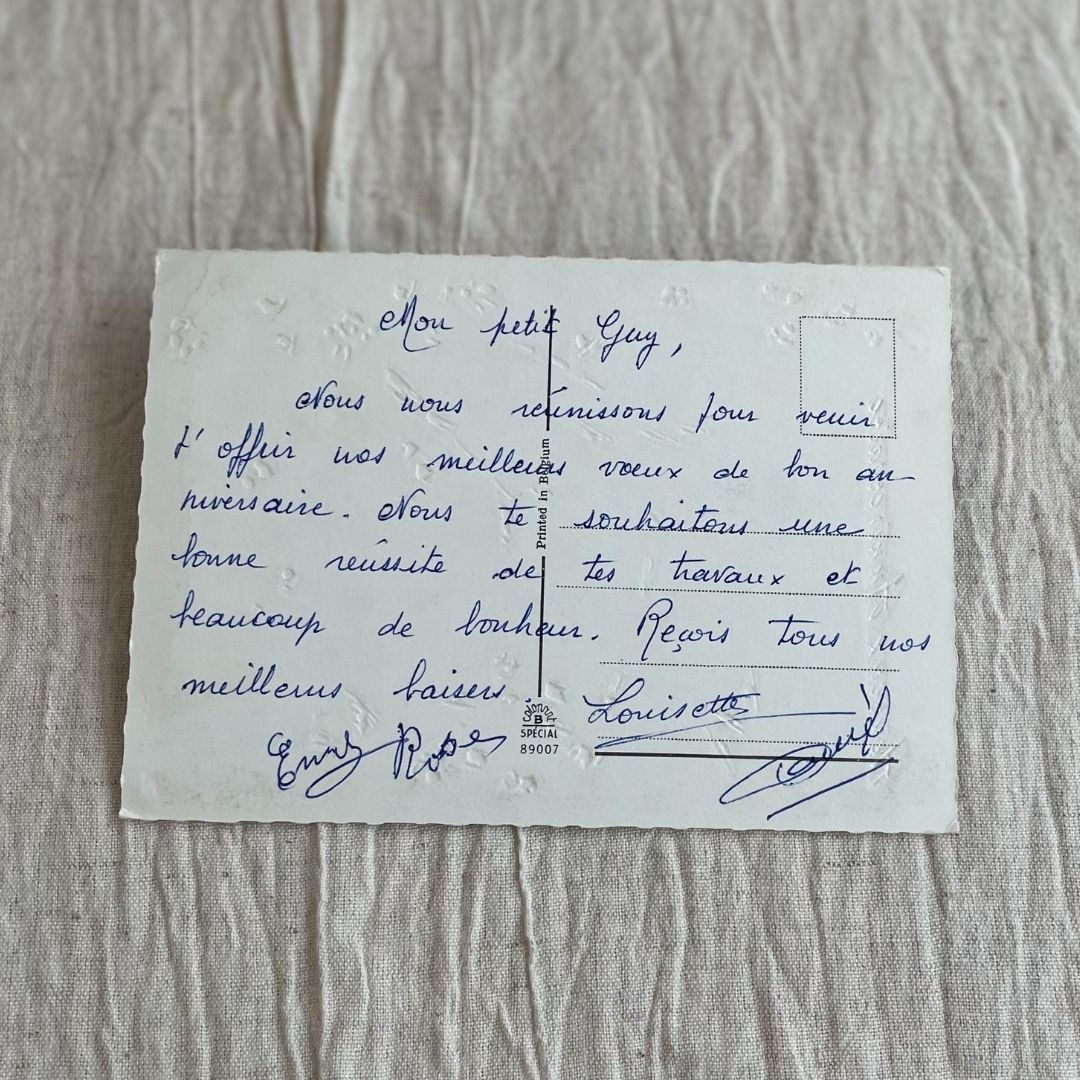 Mon petit Guy,
Nous nous réunissons pour venir
t'offrir nos meilleurs vœux de bon an-
niversaire. Nous te souhaitons une
bonne réussite de tes travaux et
beaucoup de bonheur. Reçois tous nos
meilleurs baisers.
Louisette
Rose
Printed in Belgium
Colorprint
B
SPÉCIAL
89007